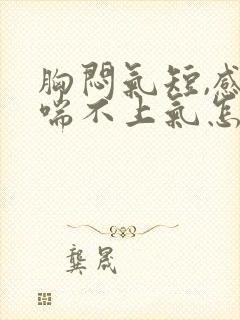 胸悶氣短,感
喘不上氣怎
龔晟